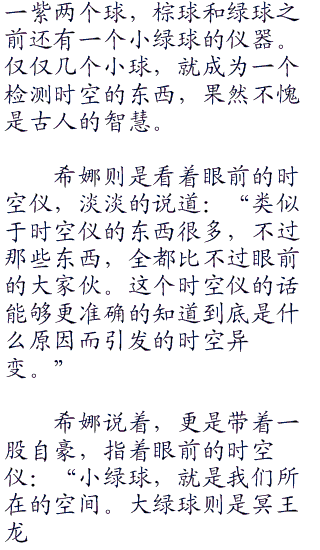 一紫两个球，棕球和绿球之
前还有一个小绿球的仪器。
仅仅几个小球，就成为一个
检测时空的东西，果然不愧
是古人的智慧。
希娜则是看着眼前的时
空仪，淡淡的说道：“类似
于时空仪的东西很多，不过
那些东西，全都比不过眼前
的大家伙。这个时空仪的话
能够更准确的知道到底是什
么原因而引发的时空异
变。”
希娜说着，更是带着一
股自豪，指着眼前的时空
仪：“小绿球，就是我们所
在的空间。大绿球则是冥王
龙